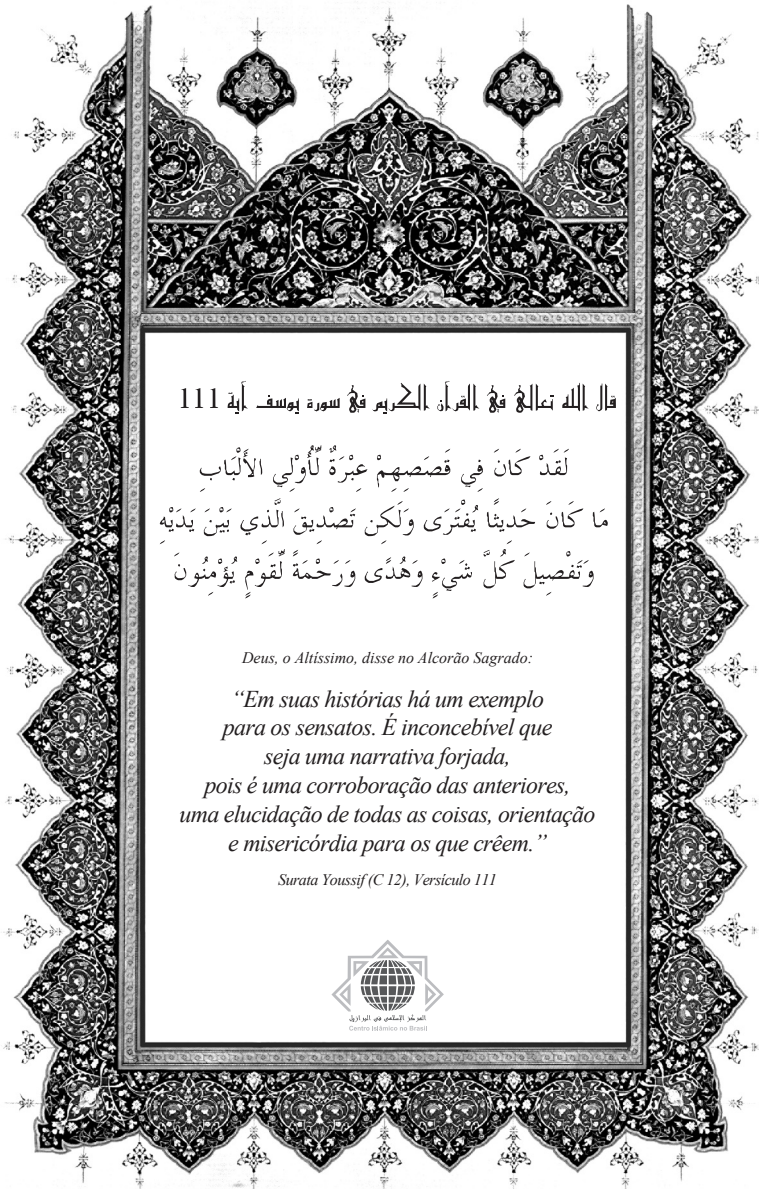 قال الله تعالى في القرآن الكريم في سورة يوسف آية 111
لَقَدْ كَانَ فِي قَصَصِهِمْ عِبْرَةٌ لِّأُوْلِي الأَلْبَابِ
مَا كَانَ حَدِيثًا يُفْتَرَى وَلَكِن تَصْدِيقَ الَّذِي بَيْنَ يَدَيْهِ
وَتَفْصِيلَ كُلَّ شَيْءٍ وَهُدًى وَرَحْمَةً لِّقَوْمٍ يُؤْمِنُونَ
Deus, o Altíssimo, disse no Alcorão Sagrado:
“Em suas histórias há um exemplo
para os sensatos. É inconcebível que
seja uma narrativa forjada,
pois é uma corroboração das anteriores,
uma elucidação de todas as coisas, orientação
e misericórdia para os que crêem.”
Surata Youssif (C 12), Versículo 111
المركز الإسلامي في البرازيل
Centro Islâmico no Brasil